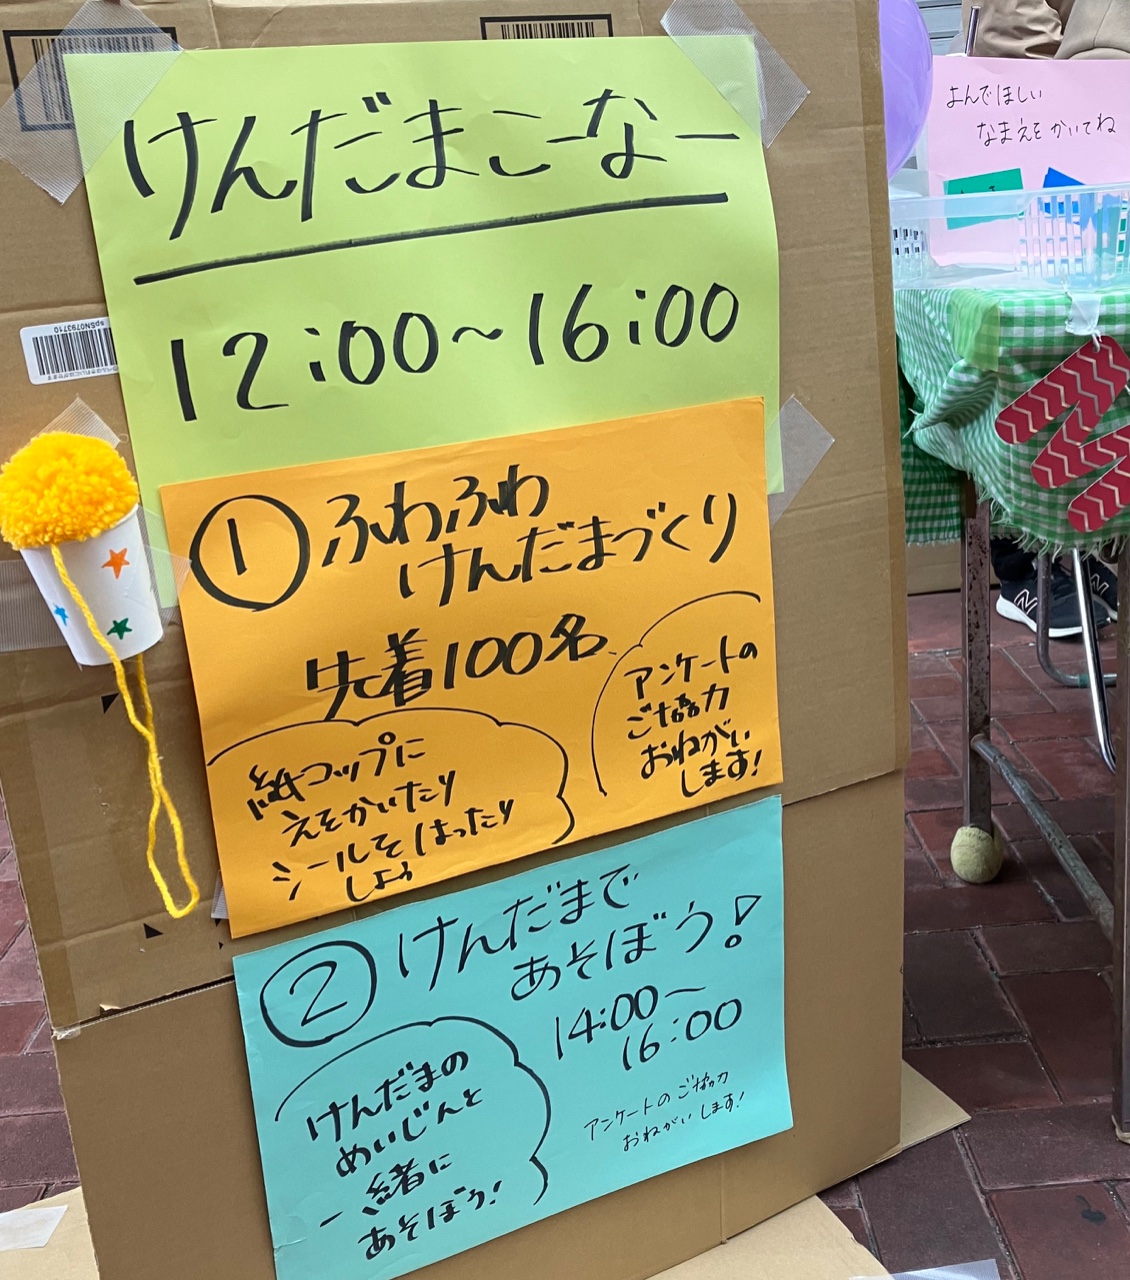 けんだまこーなー
12:00~16:00
① ふわふわ
けんだまづくり
先着100名
紙コップに
えをかいたり
シールをはったり
しよう
アンケートの
ご協力
おねがい
します!
② けんだまで
あそぼう!
14:00~
16:00
けんだまの
めいじんと
一緒に
あそぼう!
アンケートのご協力
おねがいします!
よんでほしい
なまえをかいてね
spSN0793710